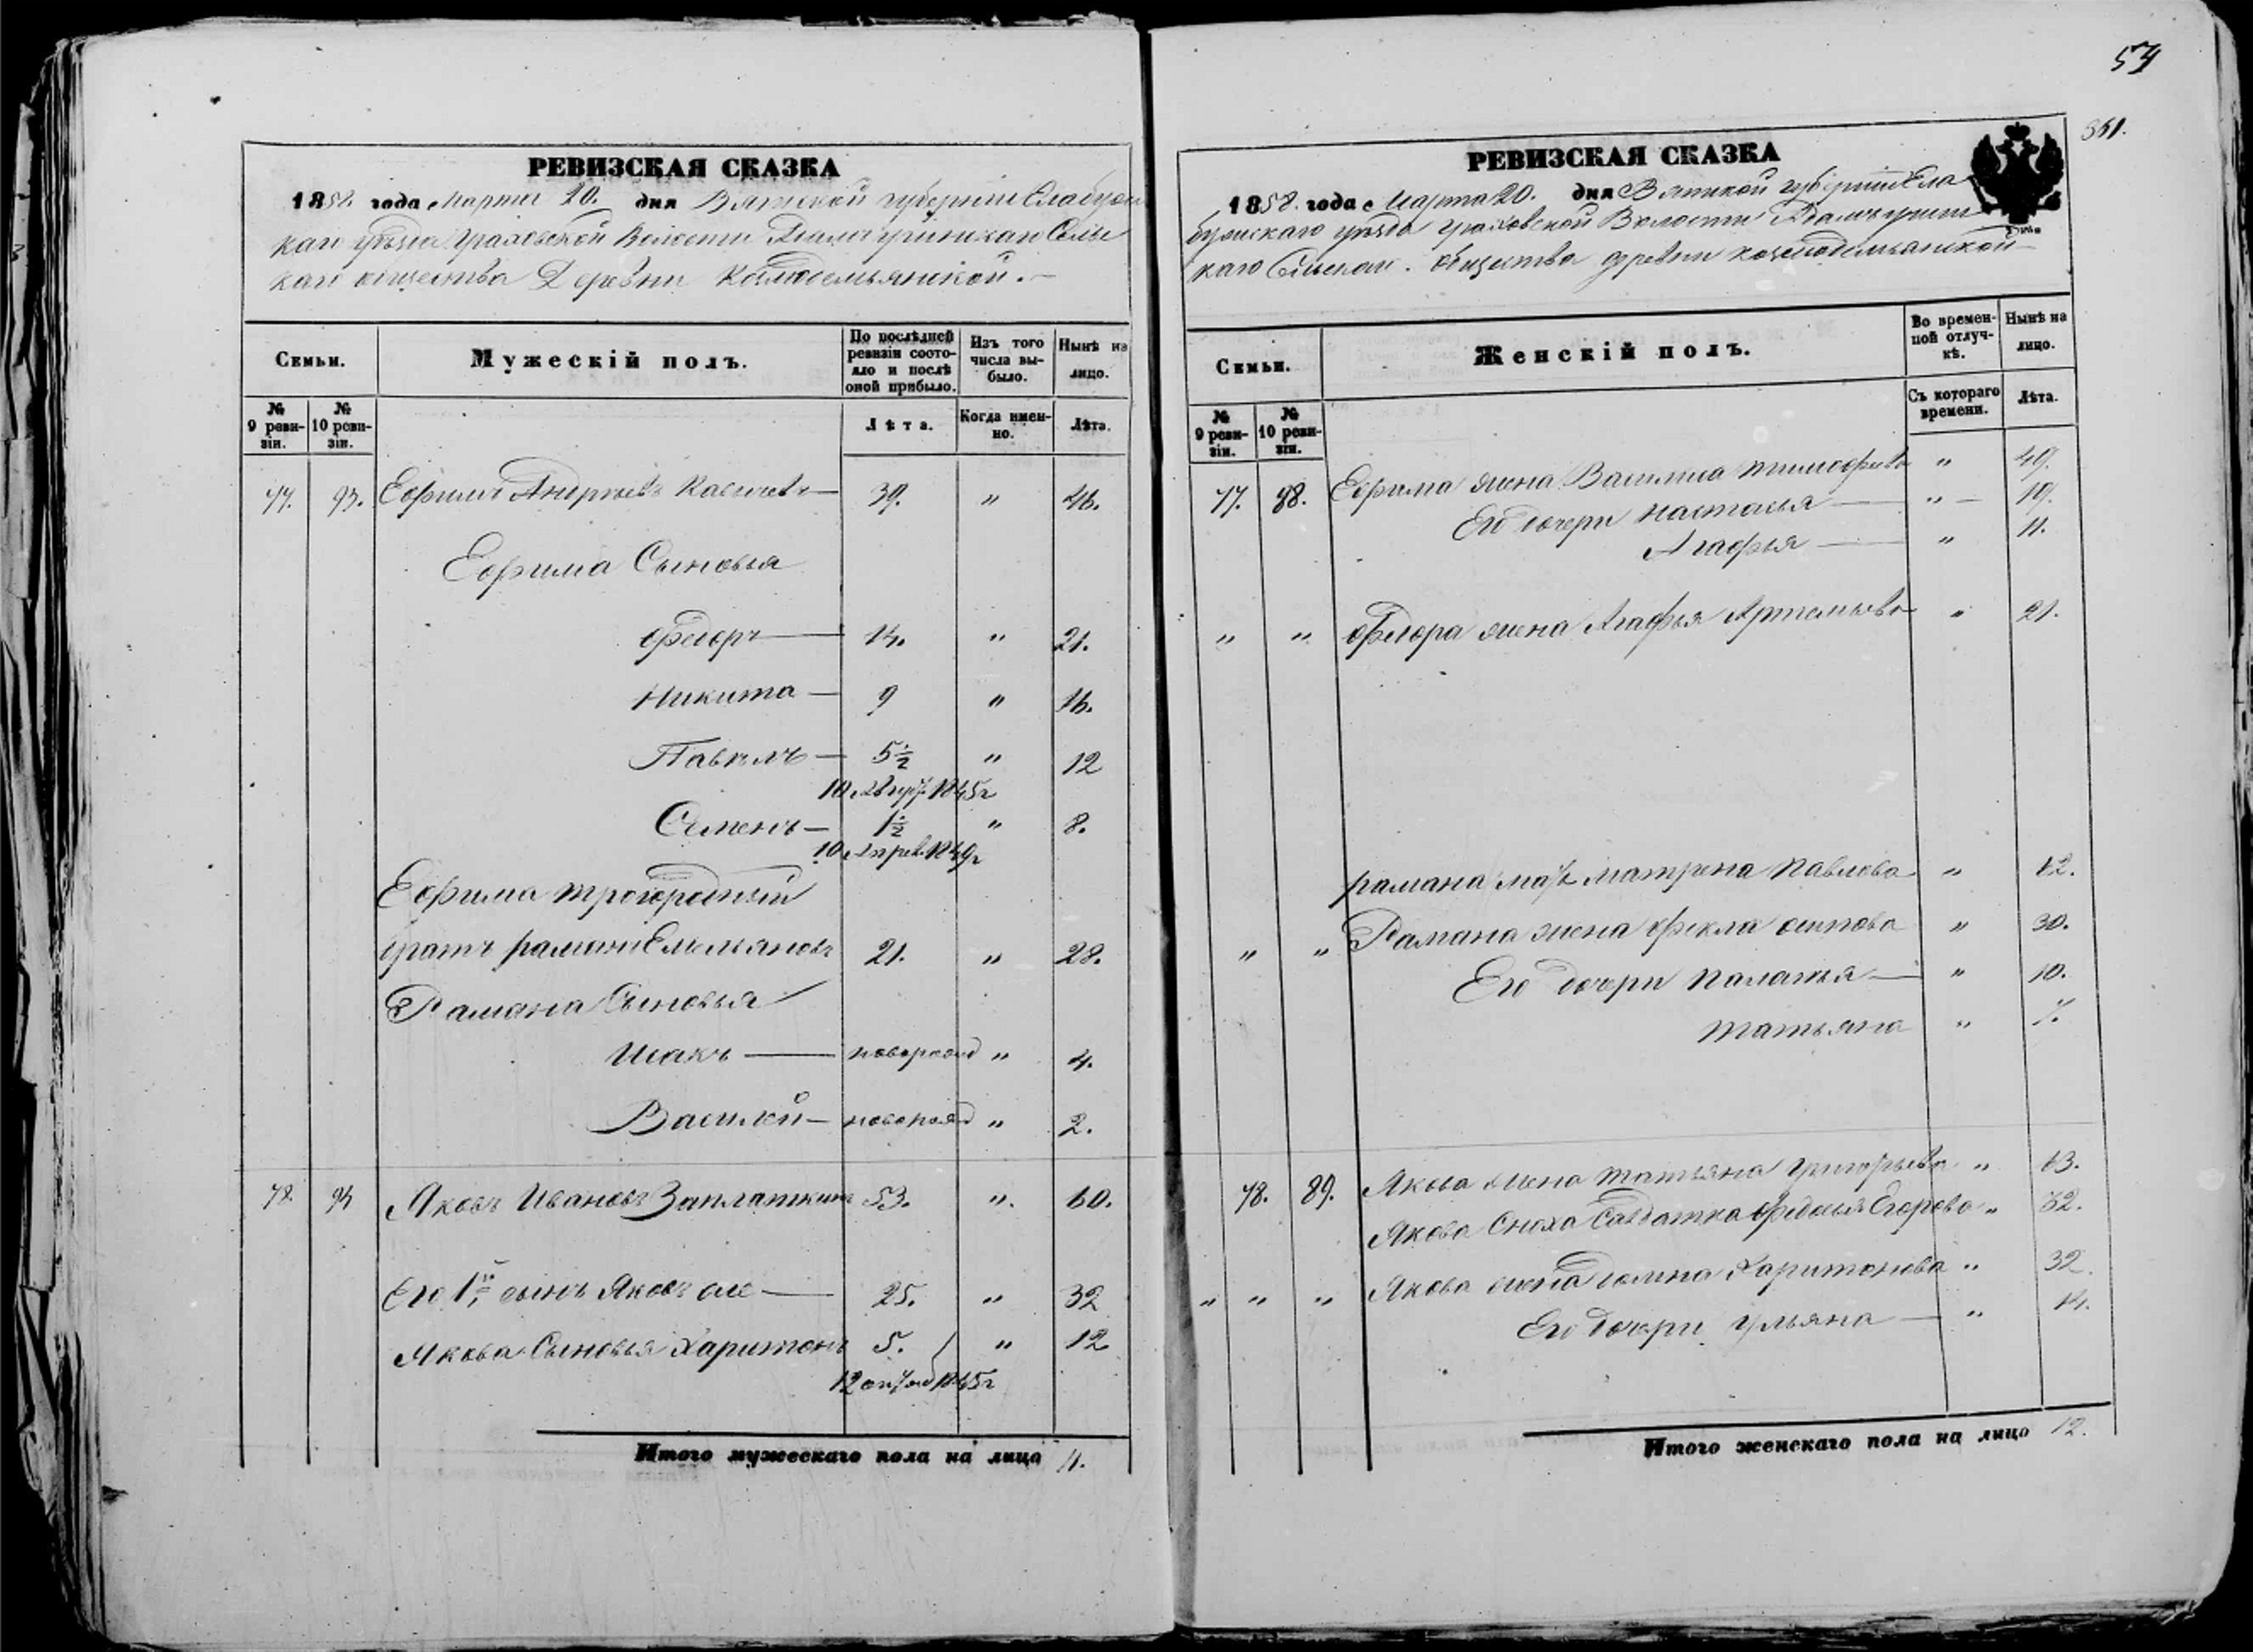 54
351.
РЕВИЗСКАЯ СКАЗКА
1858. года Марта 20. дня Вятской губерніи Елабужс
каго уѣзда Граховской Волости
каго общества Деревни Козмодемьянской.
Семьи.
Мужескій полъ.
По послѣдней ревизіи состояло и послѣ оной прибыло.
Изъ того числа выбыло.
Нынѣ на лицо.
№ 9 ревизіи.
№ 10 ревизіи.
Лѣта.
Когда именно.
Лѣта.
77. 93. Ефимъ Андреевъ 39. " 46.
Ефима Сыновья
Федоръ 14. " 21.
Никита 9 " 16.
Павелъ 5 1/2 " 12
10 1845г
Семенъ 1 1/2 " 8.
10 Апрел. 1849г
Ефима троюродный
братъ Раманъ Емельяновъ 21. " 28.
Рамана Сыновья
Исакъ новорожд " 4.
Василей новорожд " 2.
78. 94 Яковъ Ивановъ Заплаткинъ 53. ". 60.
Его 1й сынъ Яковъ же 25. " 32
Якова Сыновья Харитонъ 5. " 12
12 1845г
Итого мужескаго пола на лицо 11.
РЕВИЗСКАЯ СКАЗКА
1858. года Марта 20. дня Вятской губерніи Ела
бужскаго уѣзда Граховской Волости
каго Сельскаго. общества деревни козмодемьянской
Семьи.
Женскій полъ.
Во временной отлучкѣ.
Нынѣ на лицо.
№ 9 ревизіи.
№ 10 ревизіи.
Съ котораго времени.
Лѣта.
77. 88. Ефима жена Василиса тимофѣева " 49.
Его дочери настасья " 19.
Агафья " 11.
" " Федора жена Агафья Артемьева " 21.
рамана мать матрена павлова " 62.
" " Рамана жена фекла осипова " 30.
Его дочери палагья " 10.
татьяна "
78. 89. Якова жена татьяна григорьева " 63.
Якова Сноха Салдатка Федосья Егорова " 32.
" " " Якова жена Харитонова " 32.
Его дочери ульяна " 14.
Итого женскаго пола на лицо 12.